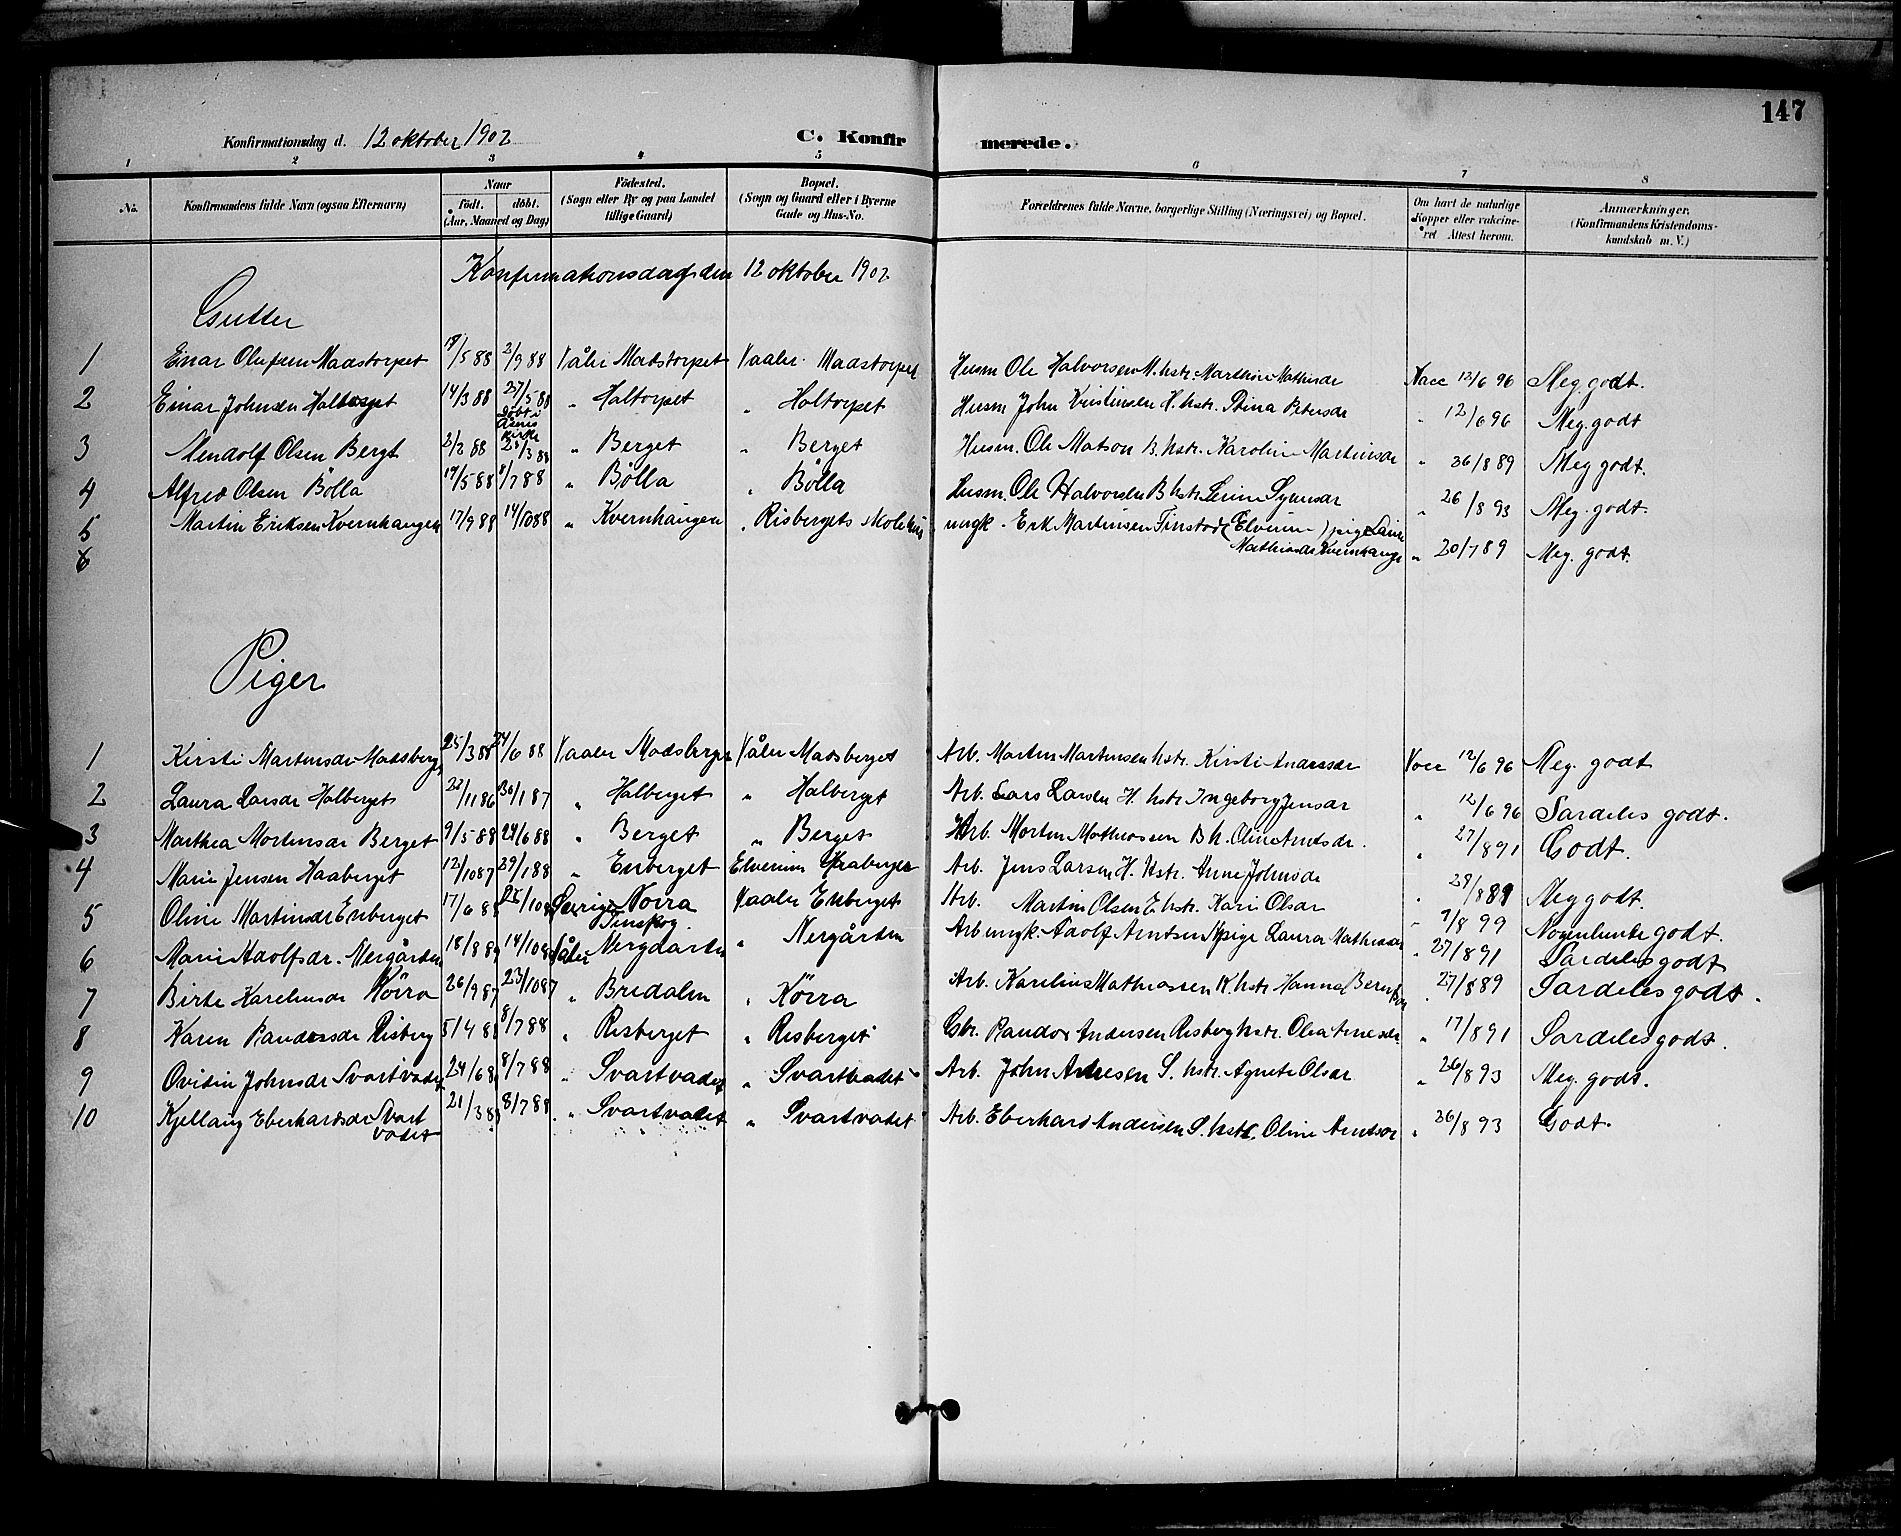 147
Konfirmationsdag d. 12 oktober 1902
C. Konfirmerede.
1 2 3 4 5 6 7 8
No.
Konfirmandens fulde Navn (ogsaa Efternavn)
Naar
født. døbt.
(Aar, Maaned og Dag)
Födested.
(Sogn eller By og paa Landet
tillige Gaard)
Bopæl.
(Sogn og Gaard eller i Byerne
Gade og Hus-No.
Forældrenes fulde Navne, borgerlige Stilling (Næringsvei) og Bopæl.
Om havt de naturlige
Kopper eller vakcine-
ret Attest herom.
Anmærkninger.
(Konfirmandens Kristendoms-
kundskab m. V.)
Konfirmationsdags den 12 oktober 1902
Gutter
1 Einar Olufsen Maastorpet /5 88 2/9 88 Våler Madstorpet Vaaler Maastorpet Husm Ole Halvorsen M. hstr. Marthin Mathisdr Vacc 12/6 96 Meg. godt.
2 Einar Johnsen Holtorpet 14/3 88 27/5 88 døbt i Åsnes kirke " Holtorpet " Holtorpet Husm John Kristiansen H. hstr. Stina Petersdr " 12/6 96 Meg. godt
3 Mendolf Olsen Berget 2/2 88 25/3 88 " Berget " Berget Husm. Ole Matson B. hstr. Karoline Martinsdr " 26/8 89 Meg godt.
4 Alfred Olsen Bölla 19/5 88 8/7 88 " Bölla " Bölla Husm. Ole Halvorsen B hstr. Simensdr " 26/8 93 Meg. godt.
5 Martin Eriksen Kvernhaugen 17/9 88 14/10 88 " Kvernhaugen " Risbergets skolehus ungk. Erk Martinsen Finstad (Elverum) pige
Mathiasdr Kvernhaugen " 20/7 89 Meg. godt.
6
Piger
1 Kirsti Martinsdr Madsberget 25/3 88 24/6 88 Vaaler Madsberget Våler Madsberget Arb. Martin Martinsen hstr. Kirsti Andersdr Vacc 12/6 96 Meg. godt
2 Laura Larsdr Halberget 22/11 86 30/1 87 " Halberget " Halberget Arb. Lars Larsen H. hstr Ingeborg Jensdr " 12/6 96 Særdeles godt.
3 Marthea Mortensdr Berget 9/5 88 24/6 88 " Berget " Berget Arb. Morten Mathiassen B h. Oline Arnesdr. " 27/8 91 Godt.
4 Marie Jensen Haaberget 12/10 87 29/1 88 " Enberget Elverum Haaberget Arb. Jens Larsen H. hstr. Anne Johnsdr " 29/8 89 Meg godt.
5 Oline Martinsdr Enberget 17/6 88 25/10 88 Sverige Norra
Finskog. Vaaler Enberget Arb. Martin Olsen E. hstr. Kari Olsdr " 7/8 99 Nogenlunde godt.
6 Marie Adolfsdr. Nergården 18/8 88 14/10 88 Våler Nergaarden " Nergården Arb ungk. Adolf Arntsen N pige Laura Mathiasdr " 27/8 91 Særdeles godt
7 Birte Karelinsdr Körra 26/9 87 23/10 87 " Bredalen " Körra Arb. Karelius Mathiassen K. hstr. Hanna " 27/8 89 Særdeles godt.
8 Karen Pandersdr Risberg 5/4 88 8/7 88 " Risberget " Risberget Gbr. Andersen Risberg hstr. Olea Arnesdr " 17/8 91 Særdeles godt.
9 Ovidia Johnsdr Svartvadet 24/6 88 8/7 88 " Svartvadet " Svartvadet Arb. John Andresen S. hstr. Agnete Olsdr " 26/8 93 Meg. godt.
10 Kjellaug Eberhardsdr Svart
vadet 21/3 88 8/7 88 " Svartvadet " Svartvadet Arb. Eberhard Andersen S. hstr. Oline Arntsdr " 26/8 93 Godt.